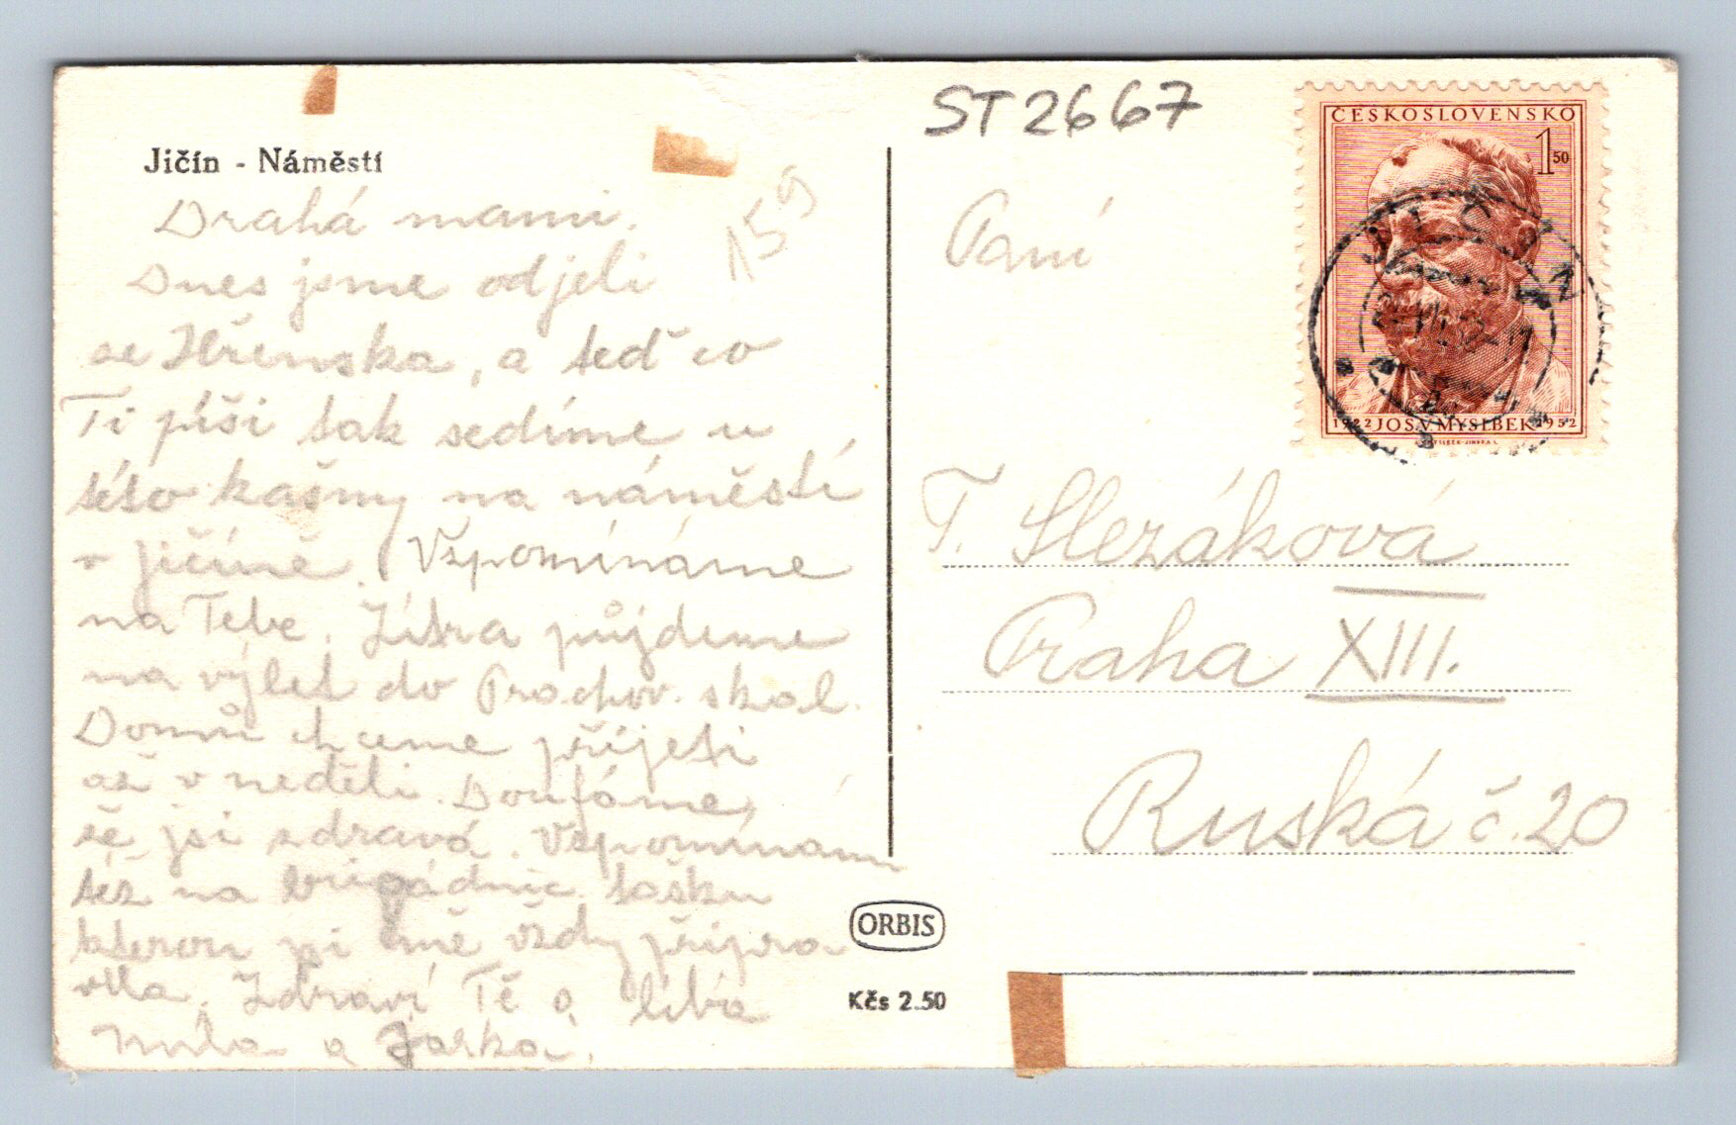 Jičín - Náměstí
Drahá mami.
Dnes jsme odjeli
ze Hřenska, a teď co
Ti píši tak sedíme u
této kašny na náměstí
v Jičíně. Vzpomínáme
na Tebe. Zítra půjdeme
na výlet do Prachov. skal.
Domů chceme přijeti
až v neděli. Doufáme,
že jsi zdravá. Vzpomínám
též na brigádnic. tašku
kterou jsi mě vždy připra
vila. Zdraví Tě a líbá
Míla a Jarka.
159
ST2667
ČESKOSLOVENSKO
1 50
1922 JOS.V.MYSLBEK 1952
JIČÍN
Paní
T. Slezáková
Praha XIII.
Ruská č. 20
ORBIS
Kčs 2.50